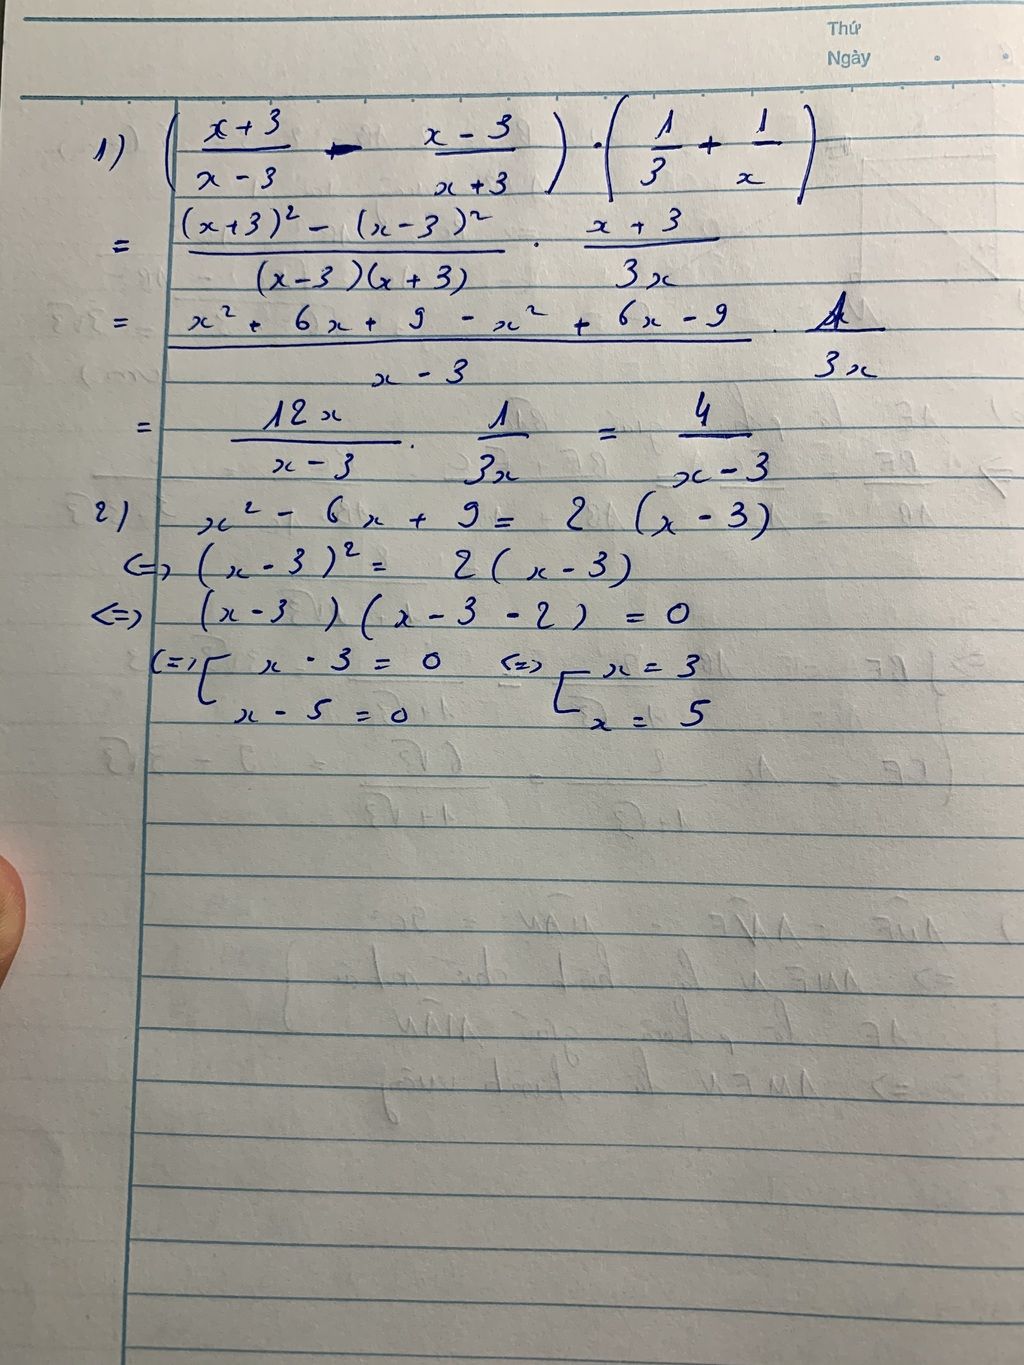 Thứ
Ngày
1) ( (x+3)/(x-3) - (x-3)/(x+3) ) . ( 1/3 + 1/x )
= ((x+3)² - (x-3)²)/((x-3)(x+3)) . (x+3)/(3x)
= (x² + 6x + 9 - x² + 6x - 9)/(x-3) . 1/(3x)
= 12x/(x-3) . 1/(3x) = 4/(x-3)
2) x² - 6x + 9 = 2 (x - 3)
<=> (x-3)² = 2(x-3)
<=> (x-3)(x-3-2) = 0
<=> [ x - 3 = 0 <=> [ x = 3
x - 5 = 0 x = 5